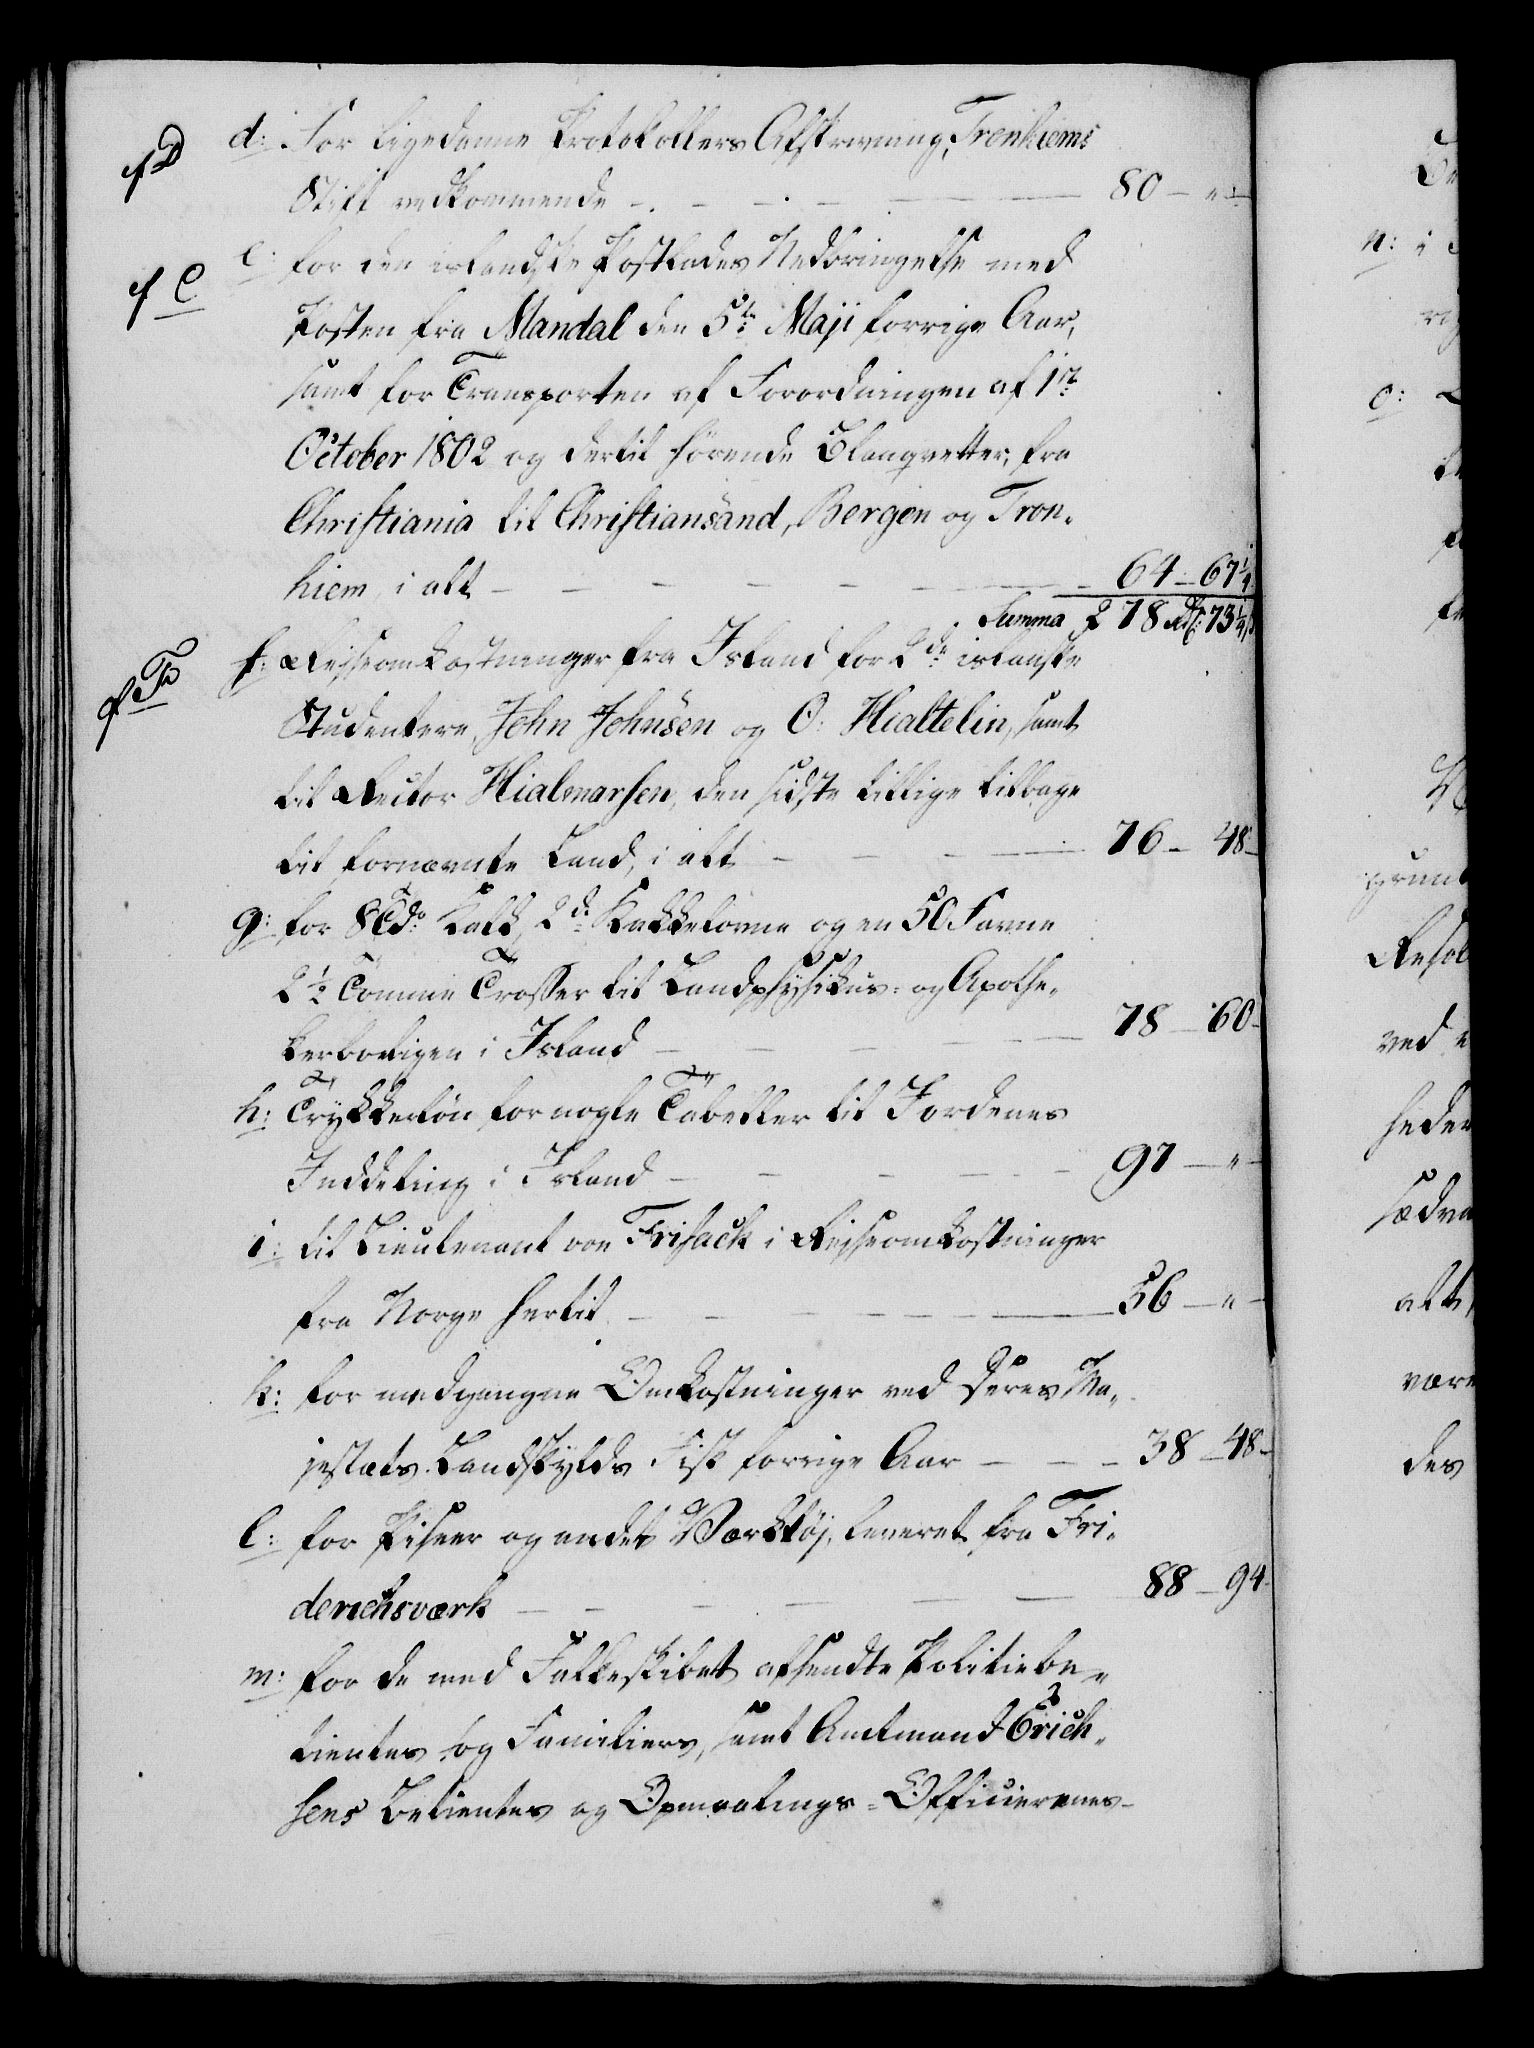 d: For ligedanne Protokollers Afskrivning, Tronhiems
Stift vedkommende - . - . - 80 - " -
e: for den islandske Postsades Nedbringelse med
Posten fra Mandal den 5te Maji forrige Aar,
samt for Transporten af Forordningen af 1ste
October 1802 og dertil hørende Blanqvetter, fra
Christiania til Christiansand, Bergen og Tron-
hiem, i alt - 64 - 67 1/4
Summa 278 Rd 73 1/4 s
f: Reiseomkostninger fra Island for 2de islanske
Studentere, John Johnsen og O: Hialtelin, samt
til Rector Hialmarsen, den sidste tillige tilbage
til fornævnte Land, i alt - 76 - 48 -
g: for 8 Tdr Kalk, 2de Kakkelovne og en 50 Favne
2 1/2 Tomme Trosser til Landphysikus- og Apothe-
kerboligen i Island - 78 - 60 -
h: Trykkerløn for nogle Tabeller til Jordenes
Inddeling i Island - 97 - " -
i: til Lieutenant von Frisack i Reiseomkostninger
fra Norge hertil - 56 - " -
k: for medgangne Omkostninger ved Deres Ma-
jestæts Landskylds Fisk forrige Aar - 38 - 48 -
l: for Piser og andet Værktøj, leveret fra Fri-
derichsværk - 88 - 94
m: for de med Falkeskibet afsendte Politiebe-
tientes og Familiers, samt Amtmand Erich-
sens Betientes og Opmaalings-Officierenes-
f D
f e
f F
n: i
o:
ved
grund
Resol
heder
sædva
alt,
være
des